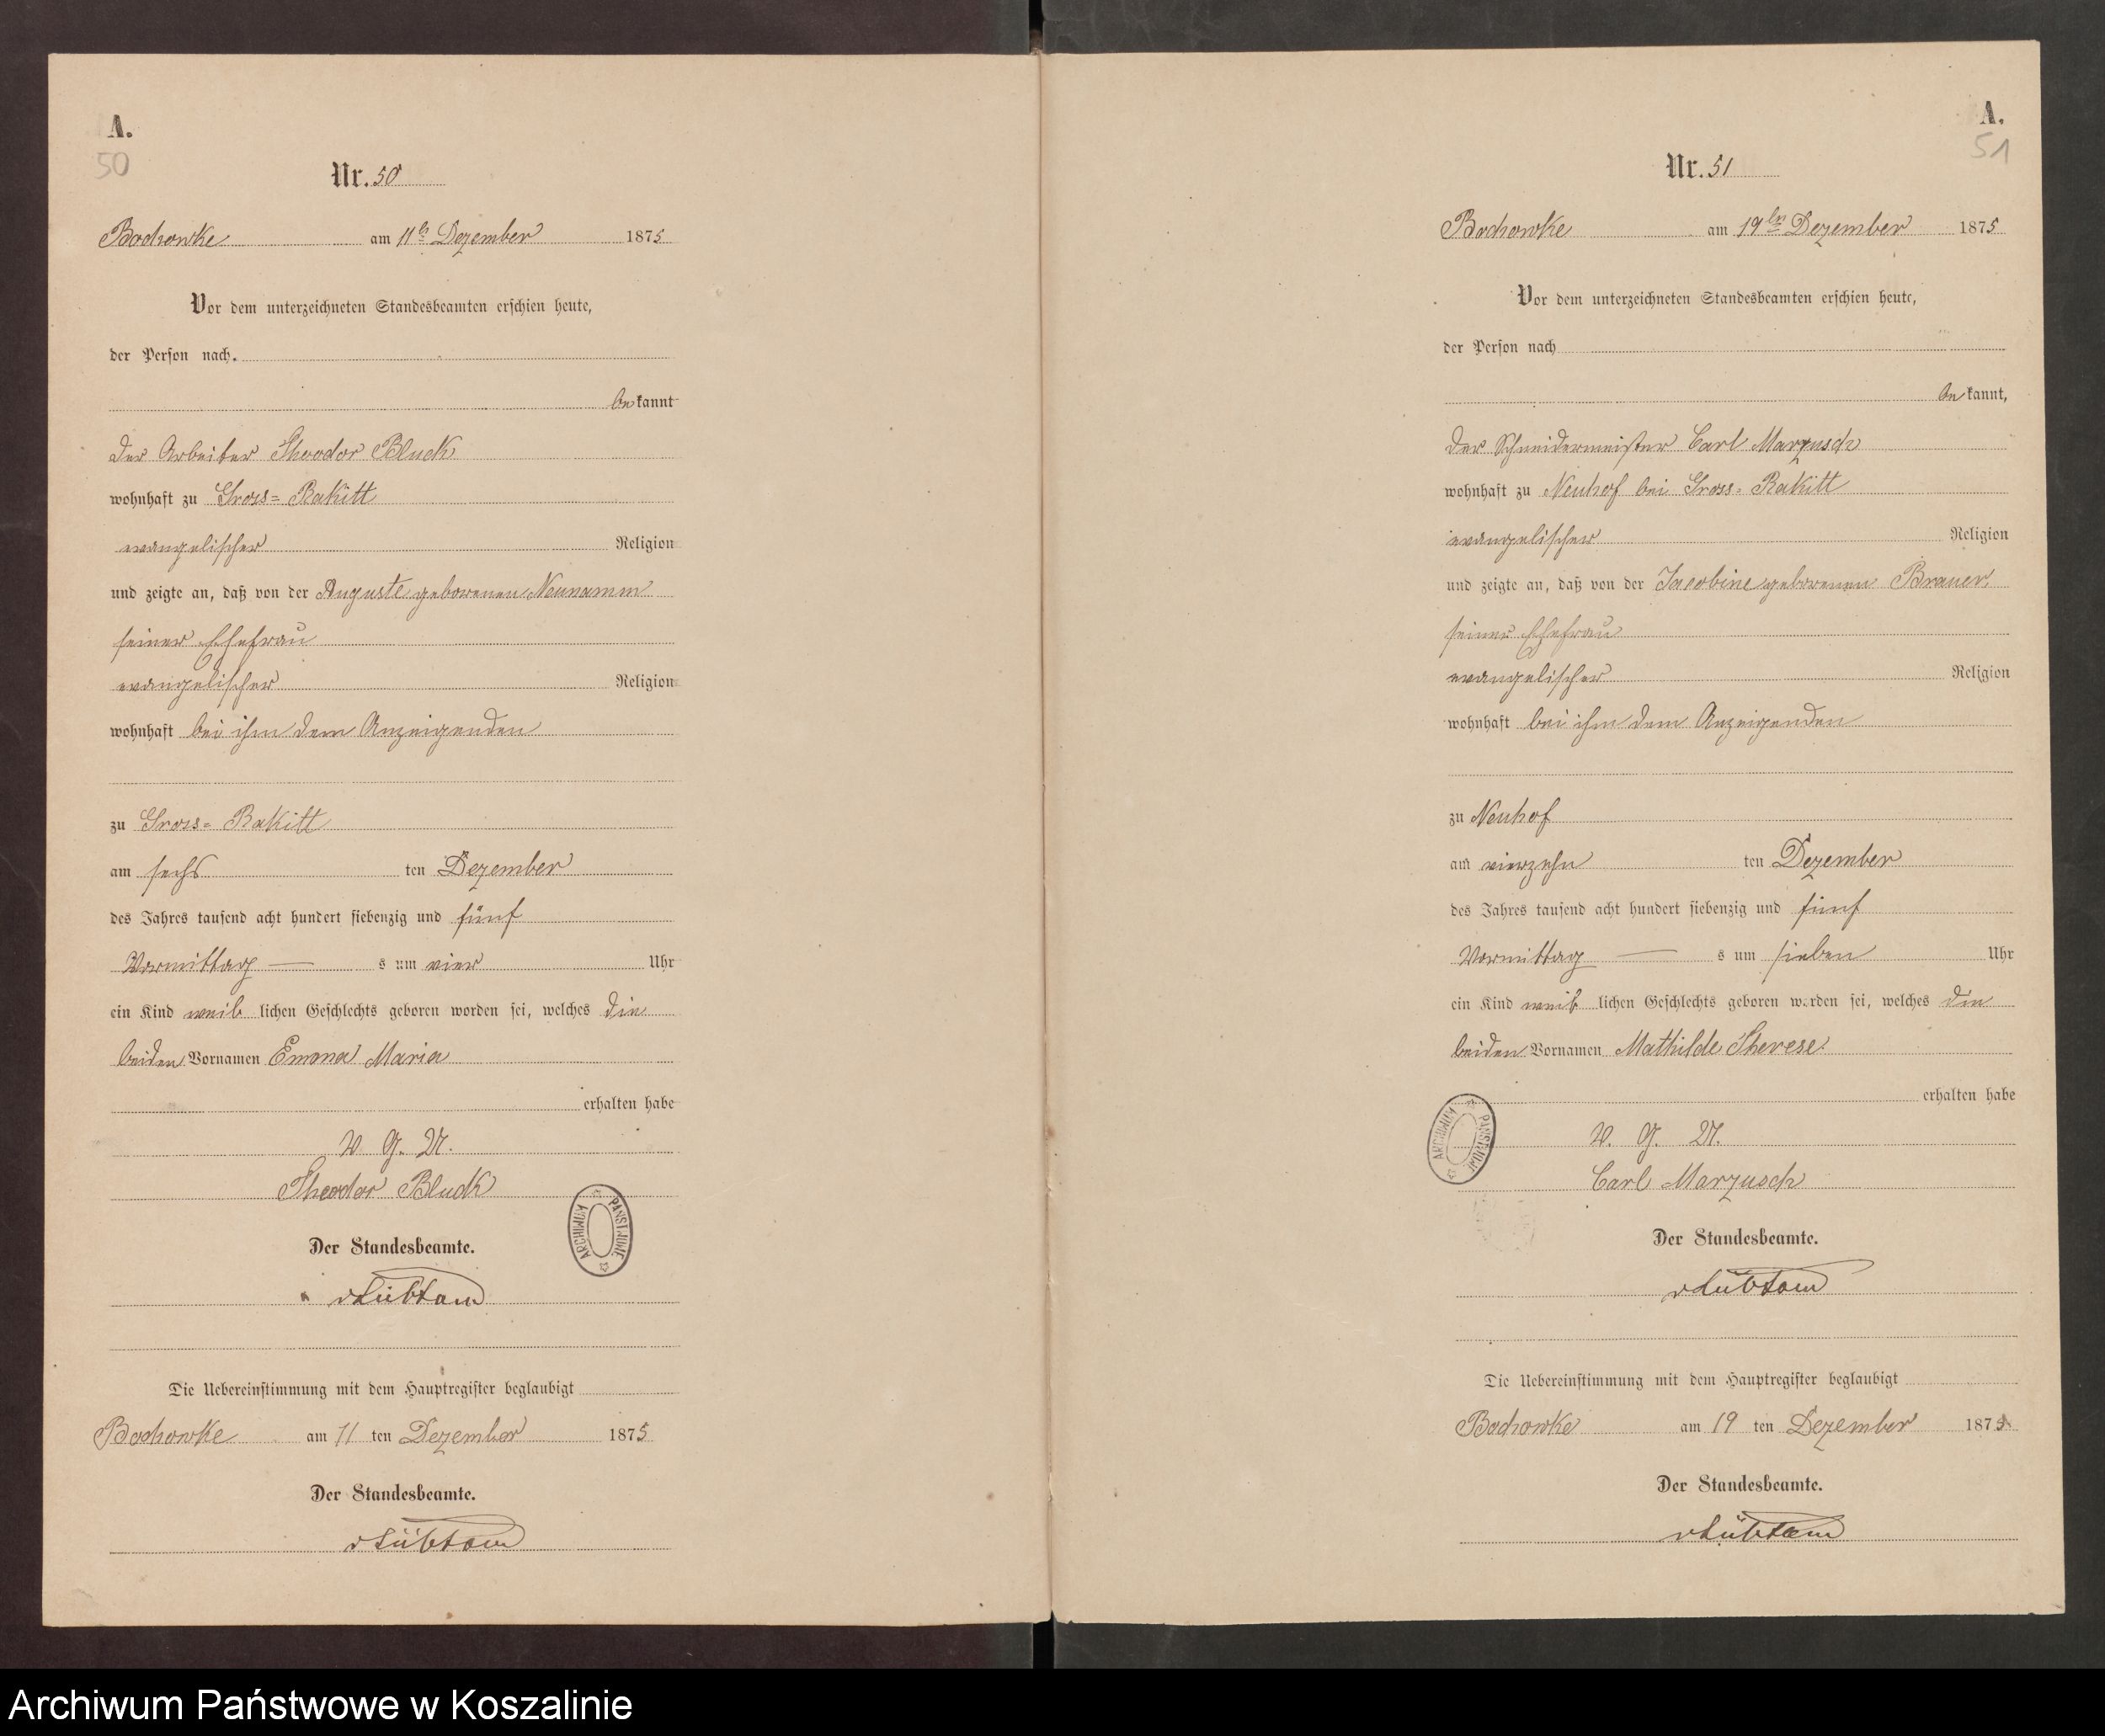 A.
50
Nr. 50
Bochowke am 11ten Dezember 1875
Vor dem unterzeichneten Standesbeamten erschien heute,
der Person nach
bekannt
der Arbeiter Theodor Bluck
wohnhaft zu Gross-Rakitt
evangelischer Religion
und zeigte an, daß von der Auguste geborenen Neunamm
seiner Ehefrau
evangelischer Religion
wohnhaft bei ihm dem Anzeigenden
zu Gross-Rakitt
am sechs ten Dezember
des Jahres tausend acht hundert siebenzig und fünf
Vormittag — s um vier Uhr
ein Kind weiblichen Geschlechts geboren worden sei, welches die
beiden Vornamen Emma Maria
erhalten habe
V. G. U.
Theodor Bluck
ARCHIWUM PAŃSTWOWE
Der Standesbeamte.
vLübtow
Die Uebereinstimmung mit dem Hauptregister beglaubigt
Bochowke am 11 ten Dezember 1875
Der Standesbeamte.
vLübtow
A.
51
Nr. 51
Bochowke am 19ten Dezember 1875
Vor dem unterzeichneten Standesbeamten erschien heute,
der Person nach
bekannt,
der Schneidermeister Carl Marzusch
wohnhaft zu Neuhof bei Gross-Rakitt
evangelischer Religion
und zeigte an, daß von der Jacobine geborenen Brauer,
seiner Ehefrau
evangelischer Religion
wohnhaft bei ihm dem Anzeigenden
zu Neuhof
am vierzehn ten Dezember
des Jahres tausend acht hundert siebenzig und fünf
Vormittag — s um sieben Uhr
ein Kind weiblichen Geschlechts geboren worden sei, welches die
beiden Vornamen Mathilde Therese
erhalten habe
ARCHIWUM PAŃSTWOWE
V. G. U.
Carl Marzusch
Der Standesbeamte.
vLübtow
Die Uebereinstimmung mit dem Hauptregister beglaubigt
Bochowke am 19 ten Dezember 1875
Der Standesbeamte.
vLübtow
Archiwum Państwowe w Koszalinie